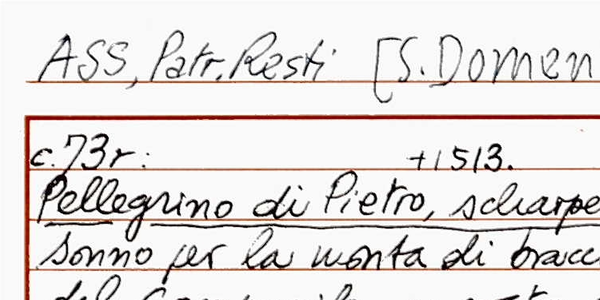 ASS, Patr. Resti [S. Domen
c. 73r: +1513.
Pellegrino di Pietro, scharpe
sonno per la monta di bracc
del